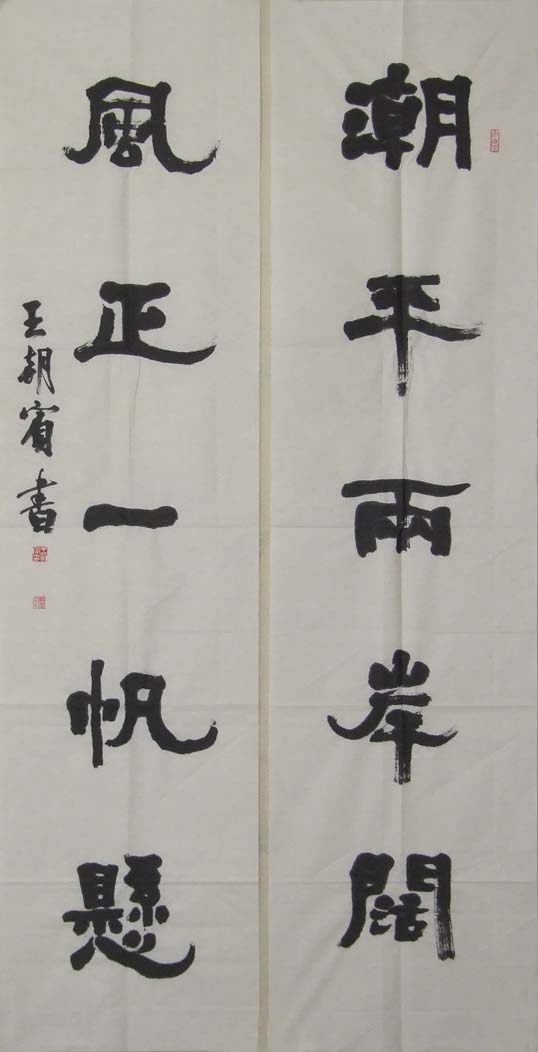 潮平兩岸闊
風正一帆懸
王朝賓書